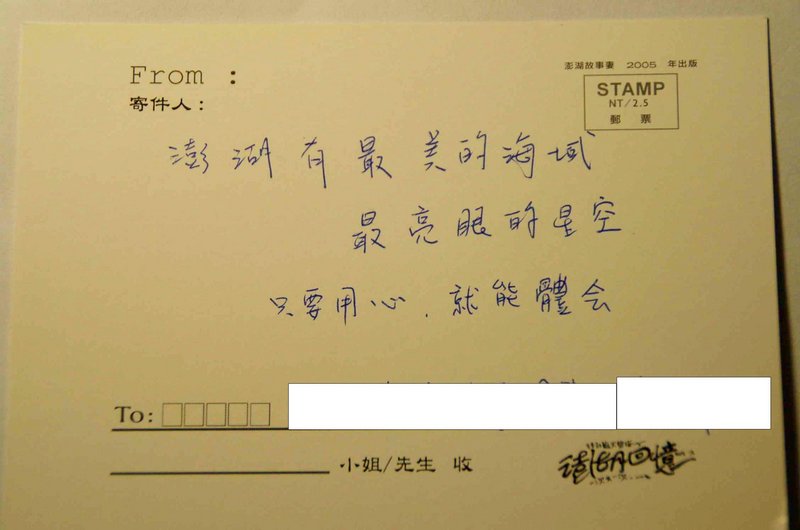 From :
寄件人:
澎湖故事妻 2005 年出版
STAMP
NT/2.5
郵 票
澎湖有最美的海域
最亮眼的星空
只要用心,就能體会
To:
小姐/先生 收
澎湖回憶